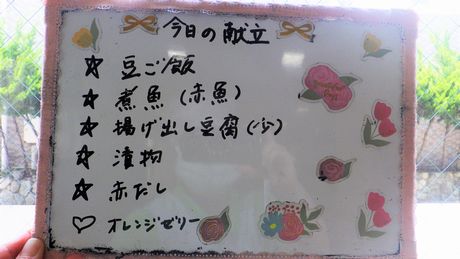 今日の献立
☆ 豆ご飯
☆ 煮魚(赤魚)
☆ 揚げ出し豆腐(少)
☆ 漬物
☆ 赤だし
♡ オレンジゼリー